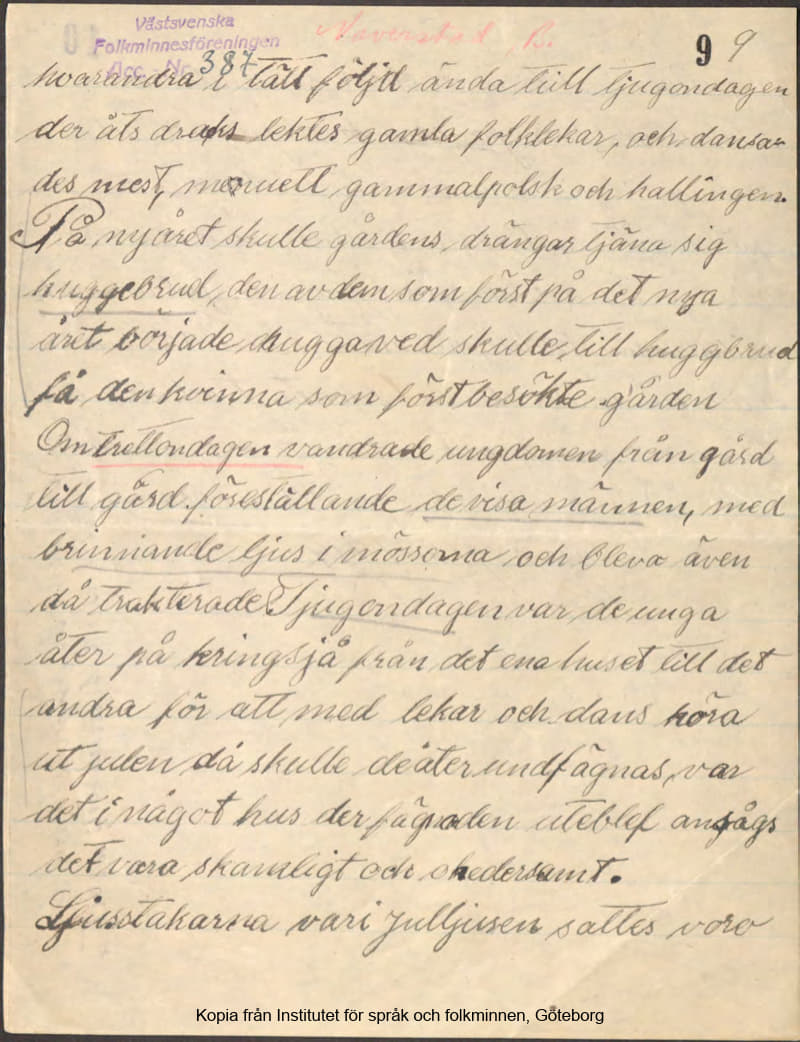 Västsvenska
Folkminnesföreningen
Acc. Nr. 387
Naverstad, B.
9 9
hvarandra i tätt följd ända till tjugondagen
der åts draks lektes gamla folklekar, och dansa-
des mest, menuett, gammalpolsk och hallingen.
På nyåret skulle gårdens drängar tjäna sig
huggebrud, den av dem som först på det nya
året började hugga ved skulle, till huggbrud
få den kvinna som först besökte gården
Om trettondagen vandrade ungdomen från gård
till gård föreställande de visa männen, med
brinnande ljus i mössorna och bleva även
då trakterade Tjugondagen var de unga
åter på kringsjå från det ena huset till det
andra för att med lekar och dans köra
ut julen då skulle de åter undfägnas, var
det i något hus der fägnaden uteblef ansågs
det vara skamligt och ohedersamt.
Ljusstakarna vari julljusen sattes voro
Kopia från Institutet för språk och folkminnen, Göteborg